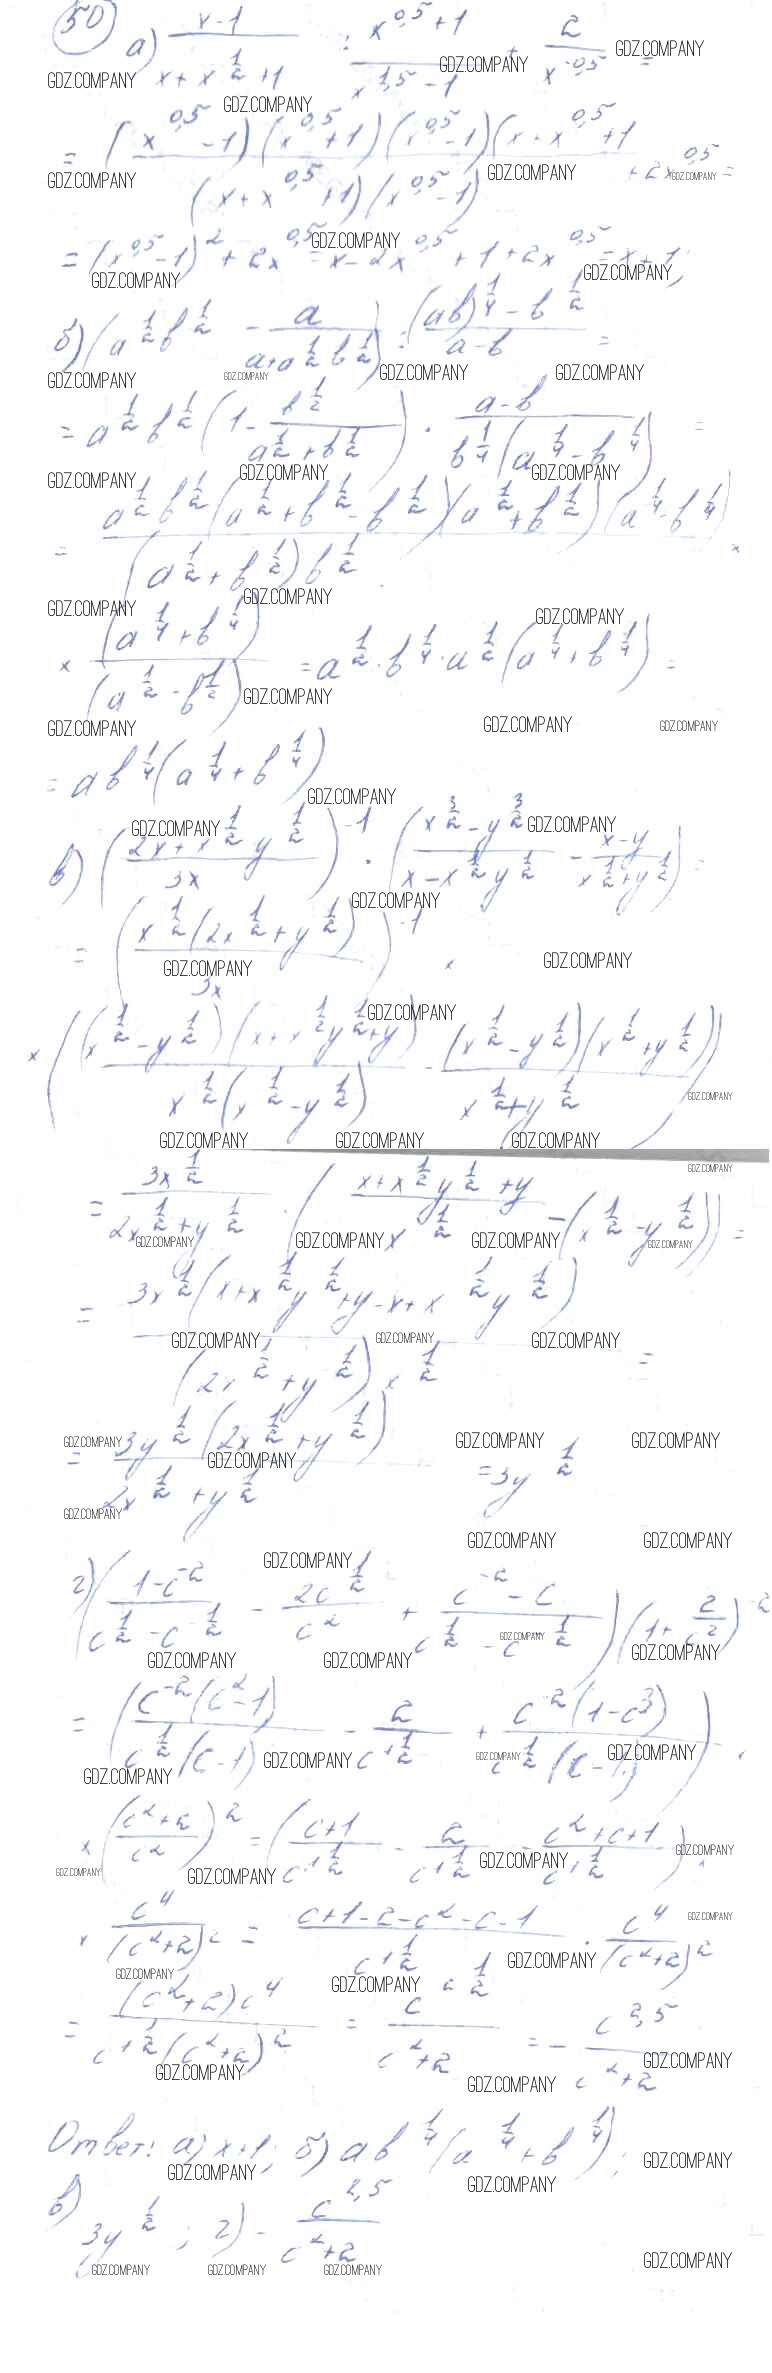 50
а) (x-1)/(x+x^(1/2)+1) : (x^0,5+1)/(x^1,5-1) + 2/x^-0,5 =
= (x^0,5-1)(x^0,5+1)(x^0,5-1)(x+x^0,5+1)/((x+x^0,5+1)(x^0,5-1)) + 2x^0,5 =
= (x^0,5-1)^2 + 2x^0,5 = x-2x^0,5+1+2x^0,5 = x+1;
б) (a^(1/2)b^(1/2) - a/(a+a^(1/2)b^(1/2))) : ((ab)^(1/4)-b^(1/2))/(a-b) =
= a^(1/2)b^(1/2)(1 - b^(1/2)/(a^(1/2)+b^(1/2))) · (a-b)/(b^(1/4)(a^(1/4)-b^(1/4))) =
= a^(1/2)b^(1/2)(a^(1/2)+b^(1/2)-b^(1/2))(a^(1/2)+b^(1/2))(a^(1/4)-b^(1/4))/((a^(1/2)+b^(1/2))b^(1/2)) ×
× (a^(1/4)+b^(1/4))/(a^(1/2)-b^(1/2)) = a^(1/2)·b^(1/4)·a^(1/2)(a^(1/4)+b^(1/4)) =
= ab^(1/4)(a^(1/4)+b^(1/4))
в) ((2x+x^(1/2)y^(1/2))/3x)^-1 · ((x^(3/2)-y^(3/2))/(x-x^(1/2)y^(1/2)) - (x-y)/(x^(1/2)+y^(1/2))) =
= (x^(1/2)(2x^(1/2)+y^(1/2))/3x)^-1 ×
× ((x^(1/2)-y^(1/2))(x+x^(1/2)y^(1/2)+y)/(x^(1/2)(x^(1/2)-y^(1/2))) - (x^(1/2)-y^(1/2))(x^(1/2)+y^(1/2))/(x^(1/2)+y^(1/2)))
= 3x^(1/2)/(2x^(1/2)+y^(1/2)) · ((x+x^(1/2)y^(1/2)+y)/x^(1/2) - (x^(1/2)-y^(1/2))) =
= 3x^(1/2)(x+x^(1/2)y^(1/2)+y-x+x^(1/2)y^(1/2))/((2x^(1/2)+y^(1/2))x^(1/2)) =
= 3y^(1/2)(2x^(1/2)+y^(1/2))/(2x^(1/2)+y^(1/2)) = 3y^(1/2)
г) ((1-c^-2)/(c^(1/2)-c^-(1/2)) - 2c^(1/2)/c^2 + (c^-2-c)/(c^(1/2)-c^-(1/2)))(1+2/c^2)^-2
= (c^-2(c^2-1)/(c^(1/2)(c-1)) - 2/c^(1 1/2) + c^-2(1-c^3)/(c^(1/2)(c-1))) ·
× ((c^2+2)/c^2)^2 = ((c+1)/c^(1 1/2) - 2/c^(1 1/2) - (c^2+c+1)/c^(1 1/2)) ·
· c^4/(c^2+2)^2 = (c+1-2-c^2-c-1)/c^(1 1/2) · c^4/(c^2+2)^2
= (c^2+2)c^4/(c^(1 1/2)(c^2+2)^2) = c^(2 1/2)/(c^2+2) = - c^2,5/(c^2+2)
Ответ: а) x+1; б) ab^(1/4)(a^(1/4)+b^(1/4));
в) 3y^(1/2); г) - c^2,5/(c^2+2)
GDZ.COMPANY